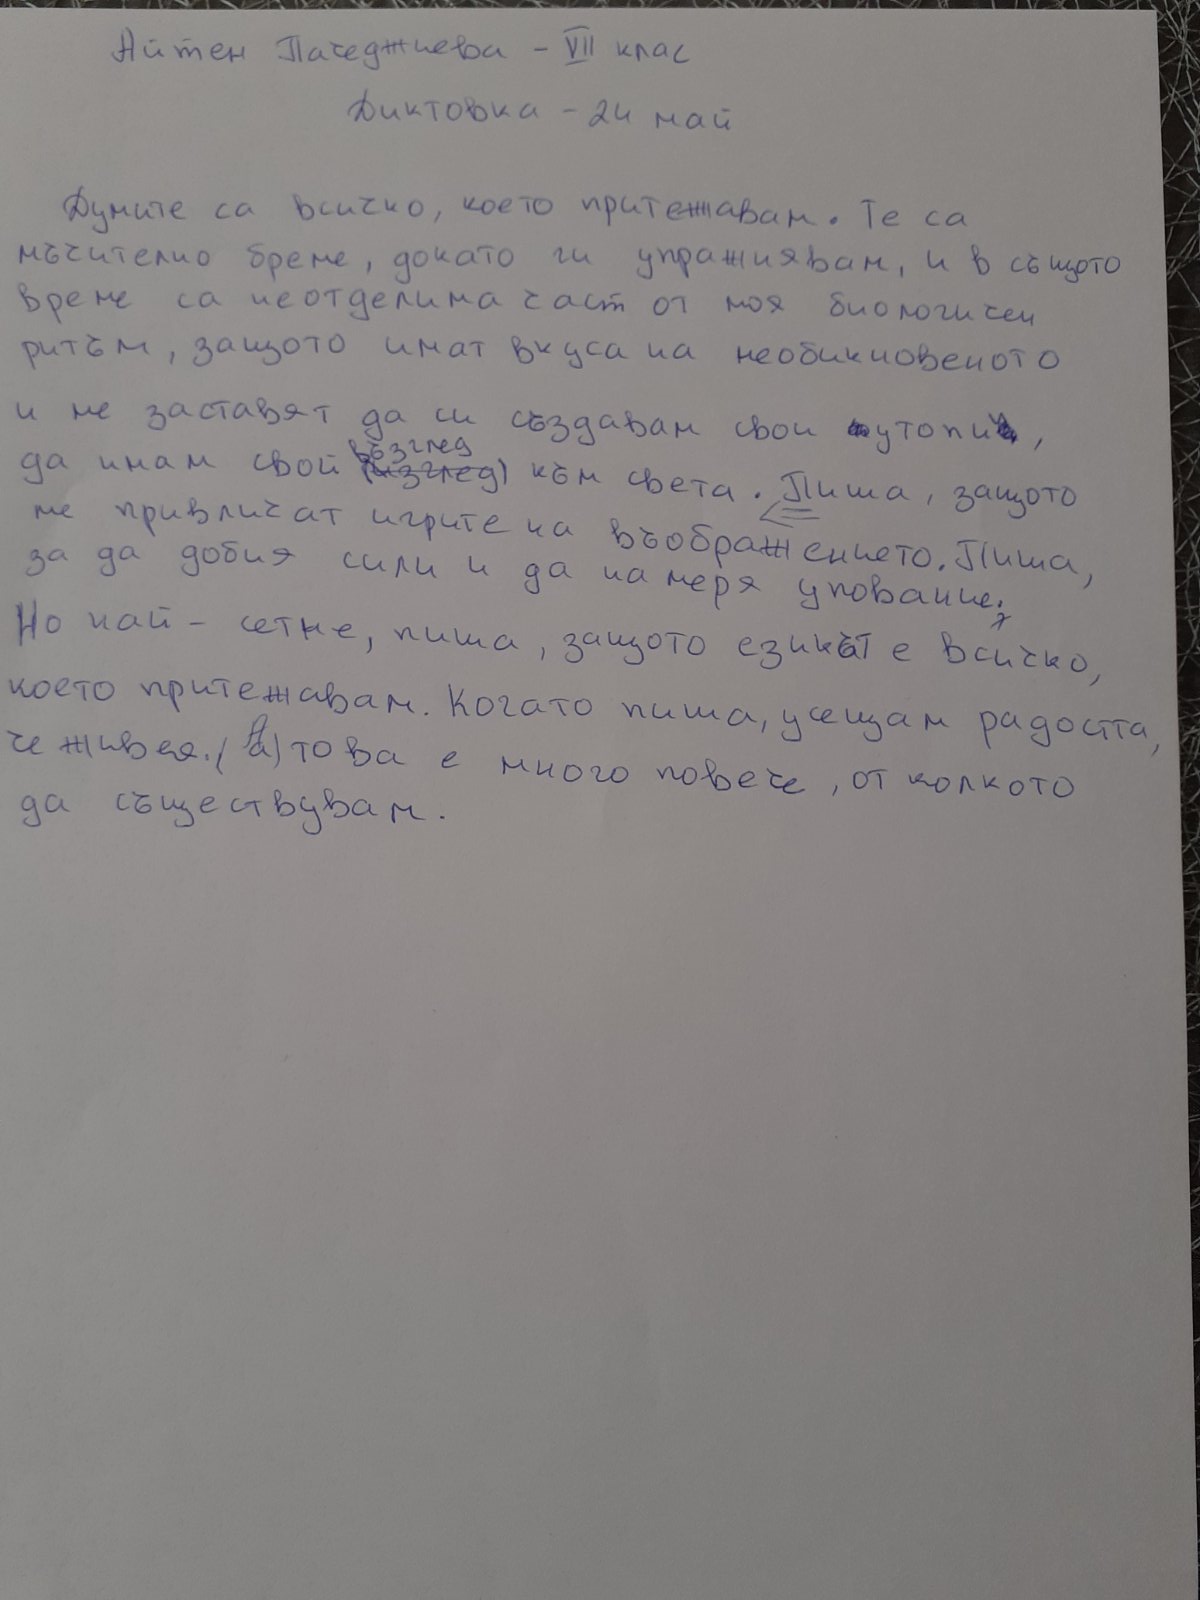 Айтен Пачеджиева - VII клас
Диктовка - 24 май
Думите са всичко, което притежавам. Те са
мъчително бреме, докато ги упражнявам, и в същото
време са неотделима част от моя биологичен
ритъм, защото имат вкуса на необикновеното
и ме заставят да си създавам свои утопии,
да имам свой (изглед) възглед към света. Пиша, защото
ме привличат игрите на въображението. Пиша,
за да добия сили и да намеря упование.
Но най - сетне, пиша, защото езикът е всичко,
което притежавам. Когато пиша, усещам радостта,
че живея. (а) А това е много повече, от колкото
да съществувам.